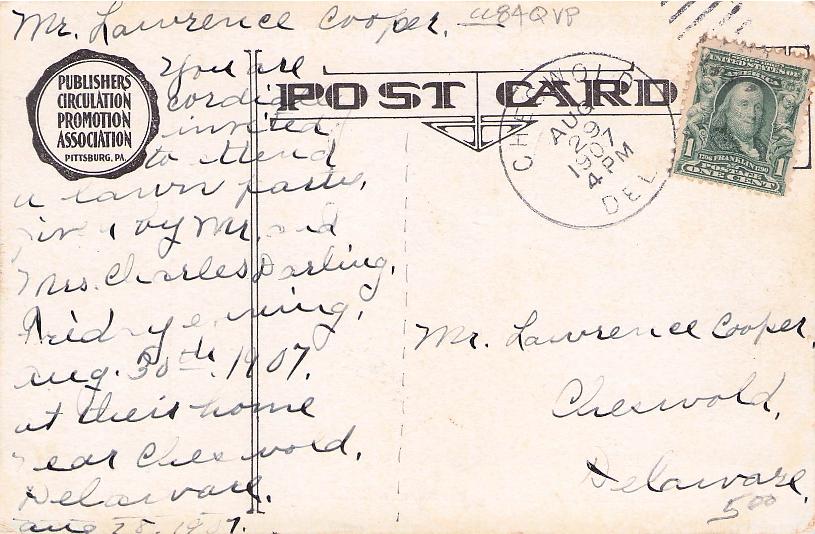 Mr. Lawrence Cooper.
PUBLISHERS
CIRCULATION
PROMOTION
ASSOCIATION
PITTSBURG, PA.
You are
cordially
invited
to attend
a lawn party,
given by Mr. and
Mrs. Charles Darling,
Friday evening,
Aug. 30th, 1907,
at their home
near Cheswold,
Delaware.
Aug 28, 1907.
POST CARD
CHESWOLD
AUG
29
1907
4-PM
DEL
UNITED STATES OF
AMERICA
1 1706 FRANKLIN 1790 1
POSTAGE
ONE CENT
Mr. Lawrence Cooper,
Cheswold,
Delaware.
5.00